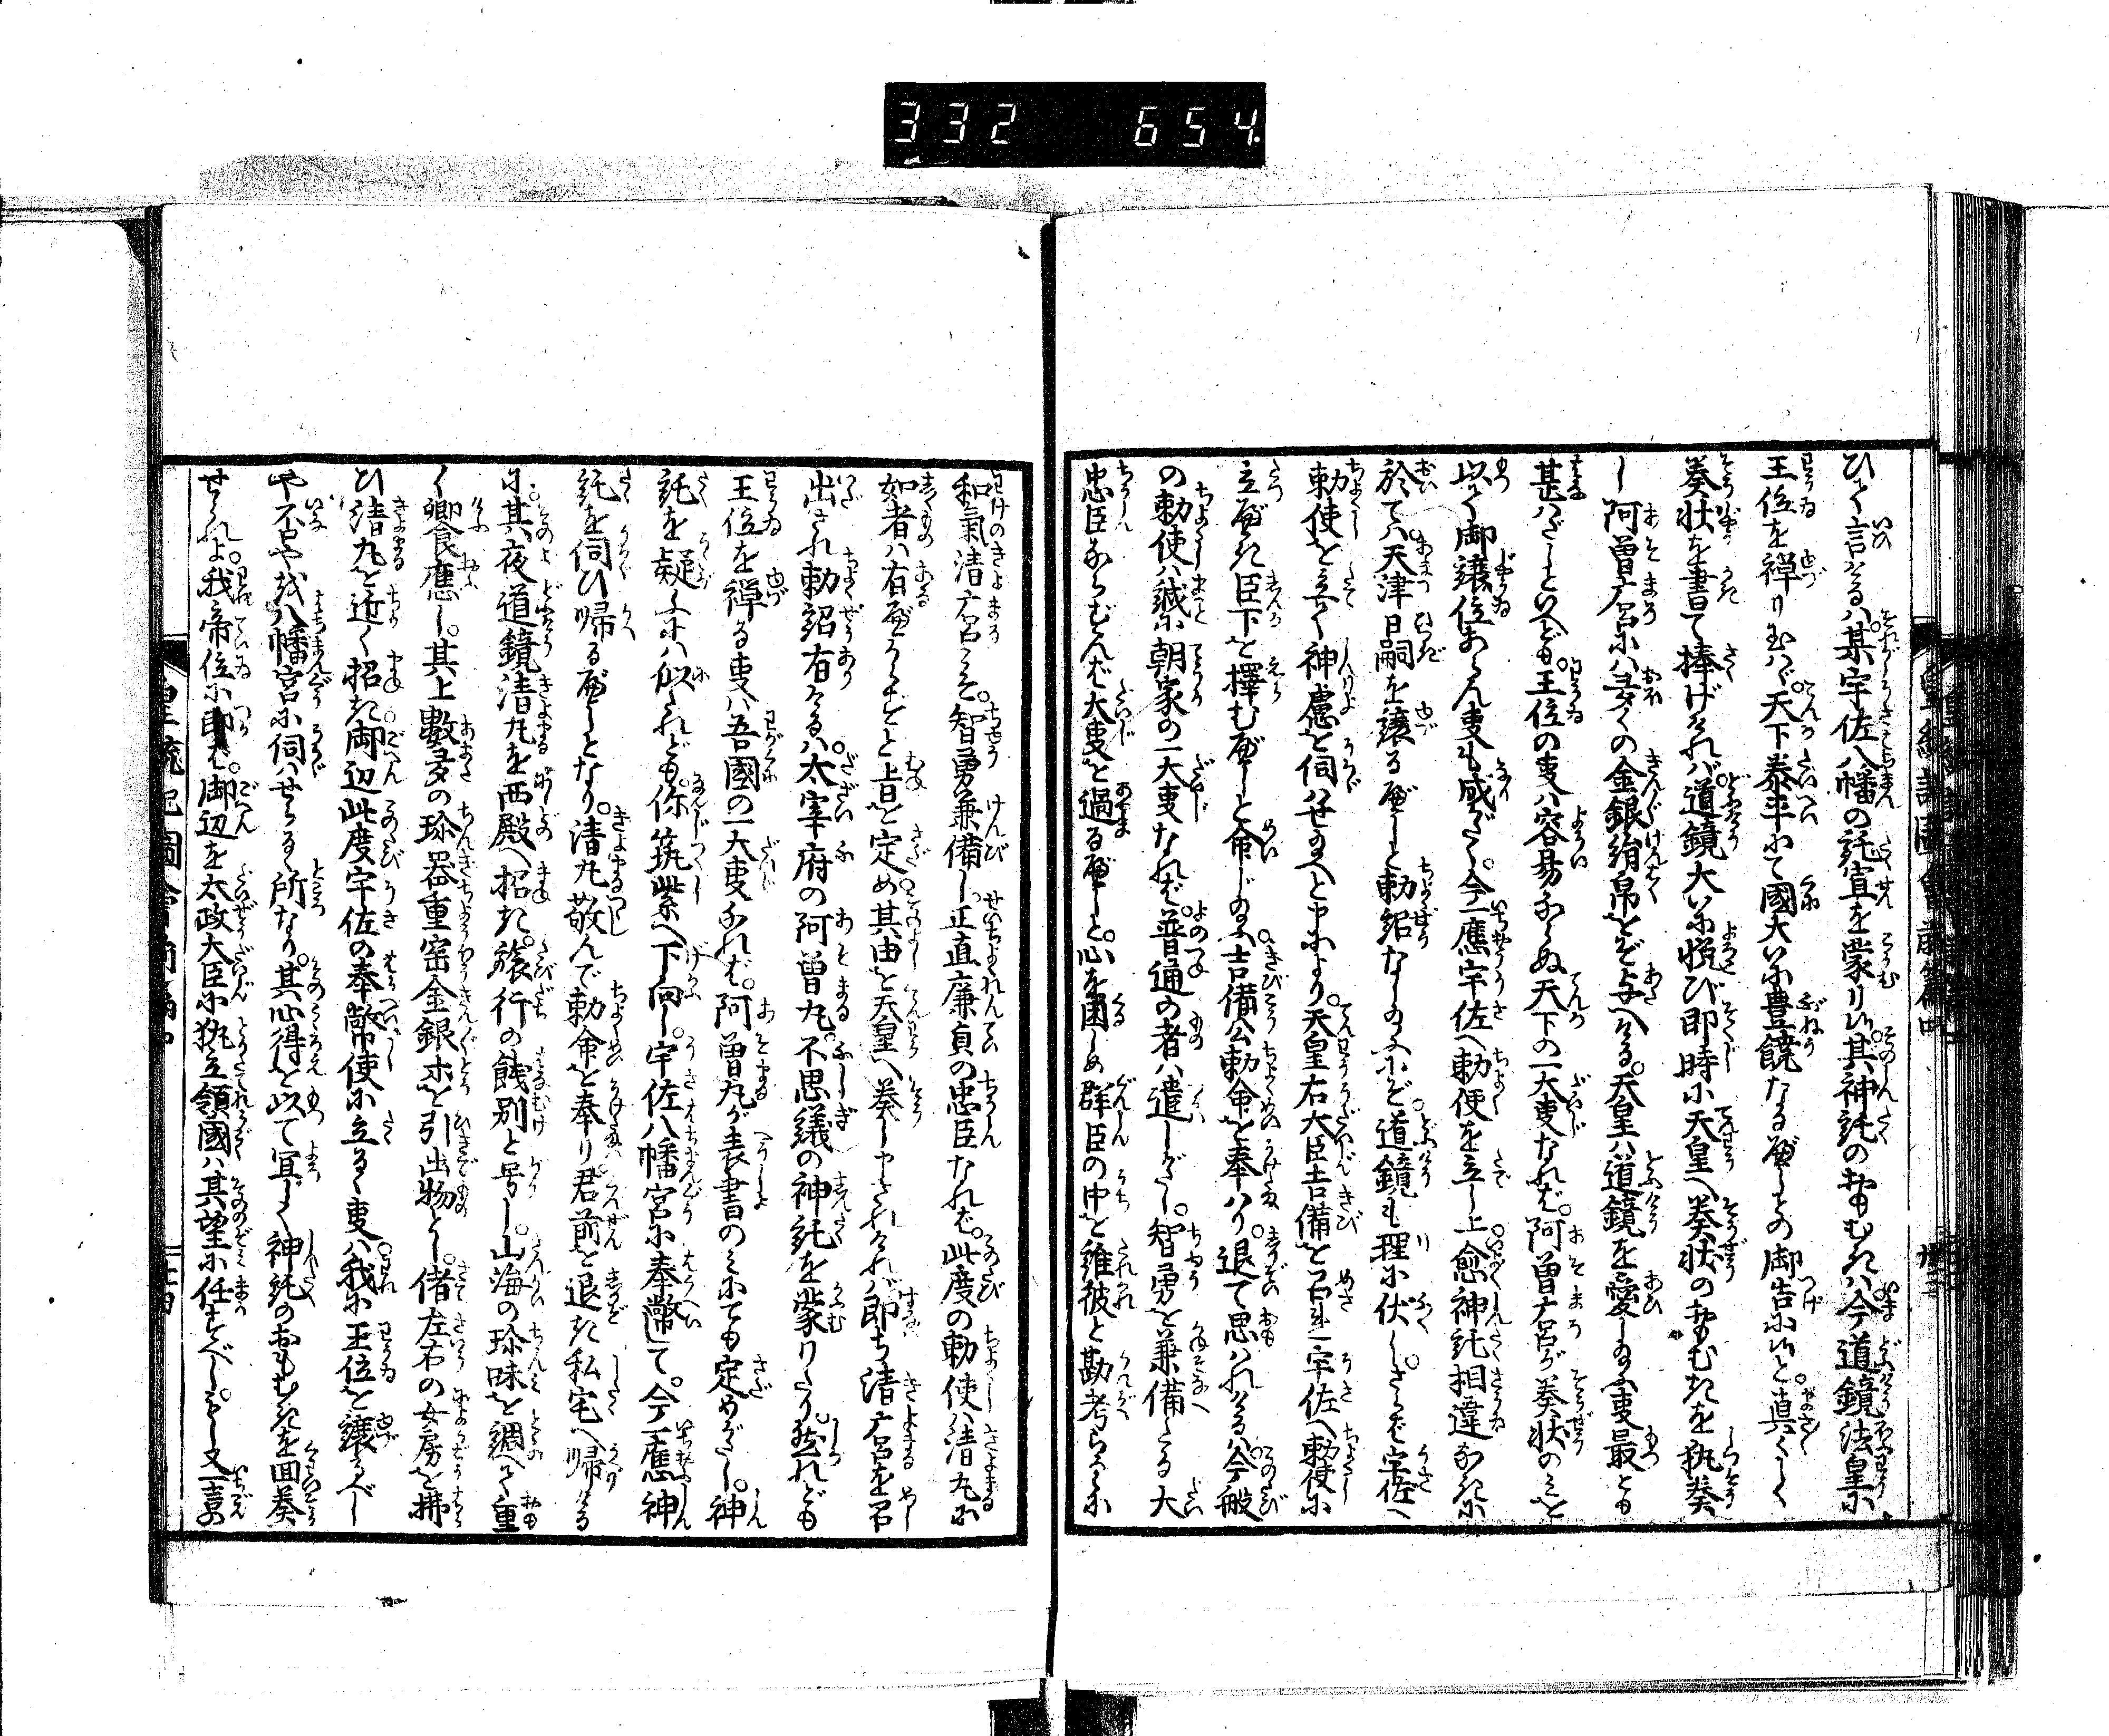 332 654
ひて言けるハ某宇佐八幡の託宣を蒙り候其神託のおもむきハ今道鏡法皇に
王位を禅り玉ハヾ天下泰平にて國大いに豊饒なるべしとの御告に候と真〳〵しく
奏状を書て捧げけれバ道鏡大いに悦び即時に天皇へ奏状のおもむきを執奏
し阿曽麿にハ多くの金銀絹帛をぞ与へける天皇ハ道鏡を愛し玉ふ事最とも
甚ハだしといへども王位の事ハ容易ならぬ天下の一大事なれバ阿曽麿が奏状のミを
以て御譲位あらん事も成がたく今一應宇佐へ勅使を立し上愈神託相違なきに
於てハ天津日嗣を譲るべしと勅詔なし玉ふにぞ道鏡も理に伏しさらバ宇佐へ
勅使を立て神慮を伺ハせ玉へと申により天皇右大臣吉備を召れ宇佐へ勅使に
立べき臣下を擇むべしと命じ玉ふ吉備公勅命を奉ハり退て思ハれけるハ今般
の勅使ハ誠に朝家の一大事なれバ普通の者ハ遣しがたし智勇を兼備たる大
忠臣ならむんバ大事を過るべしと心を困しめ群臣の中を誰彼と勘考らるゝに
和氣清麿こそ智勇兼備し正直廉貞の忠臣なれバ此度の勅使ハ清丸に
如者ハ有べからずと旨を定め其由を天皇へ奏し申されけれバ即ち清麿を召
出され勅詔有けるハ太宰府の阿曽丸不思議の神託を蒙りたり然れども
王位を禅る事ハ吾國の一大事なれバ阿曽丸が表書のミにても定めがたし神
託を疑ふにハ似たれども你筑紫へ下向し宇佐八幡宮に奉幣して今一應神
託を伺ひ帰るべしとなり清丸敬んで勅命を奉り君前を退き私宅へ帰ける
に其夜道鏡清丸を西殿へ招き旅行の餞別と号し山海の珍味を調へて重
く饗應し其上數多の珍器重宝金銀ホを引出物とし偖左右の女房を拂
ひ清丸を近く招き御辺此度宇佐の奉幣使に立るゝ事ハ我に王位を譲るべし
や否や越八幡宮に伺ハせらるゝ所なり其心得を以て宜しく神託のおもむきを面奏
せられよ我帝位に即バ御辺を太政大臣に執立領國ハ其望に任すべしもし又一言の